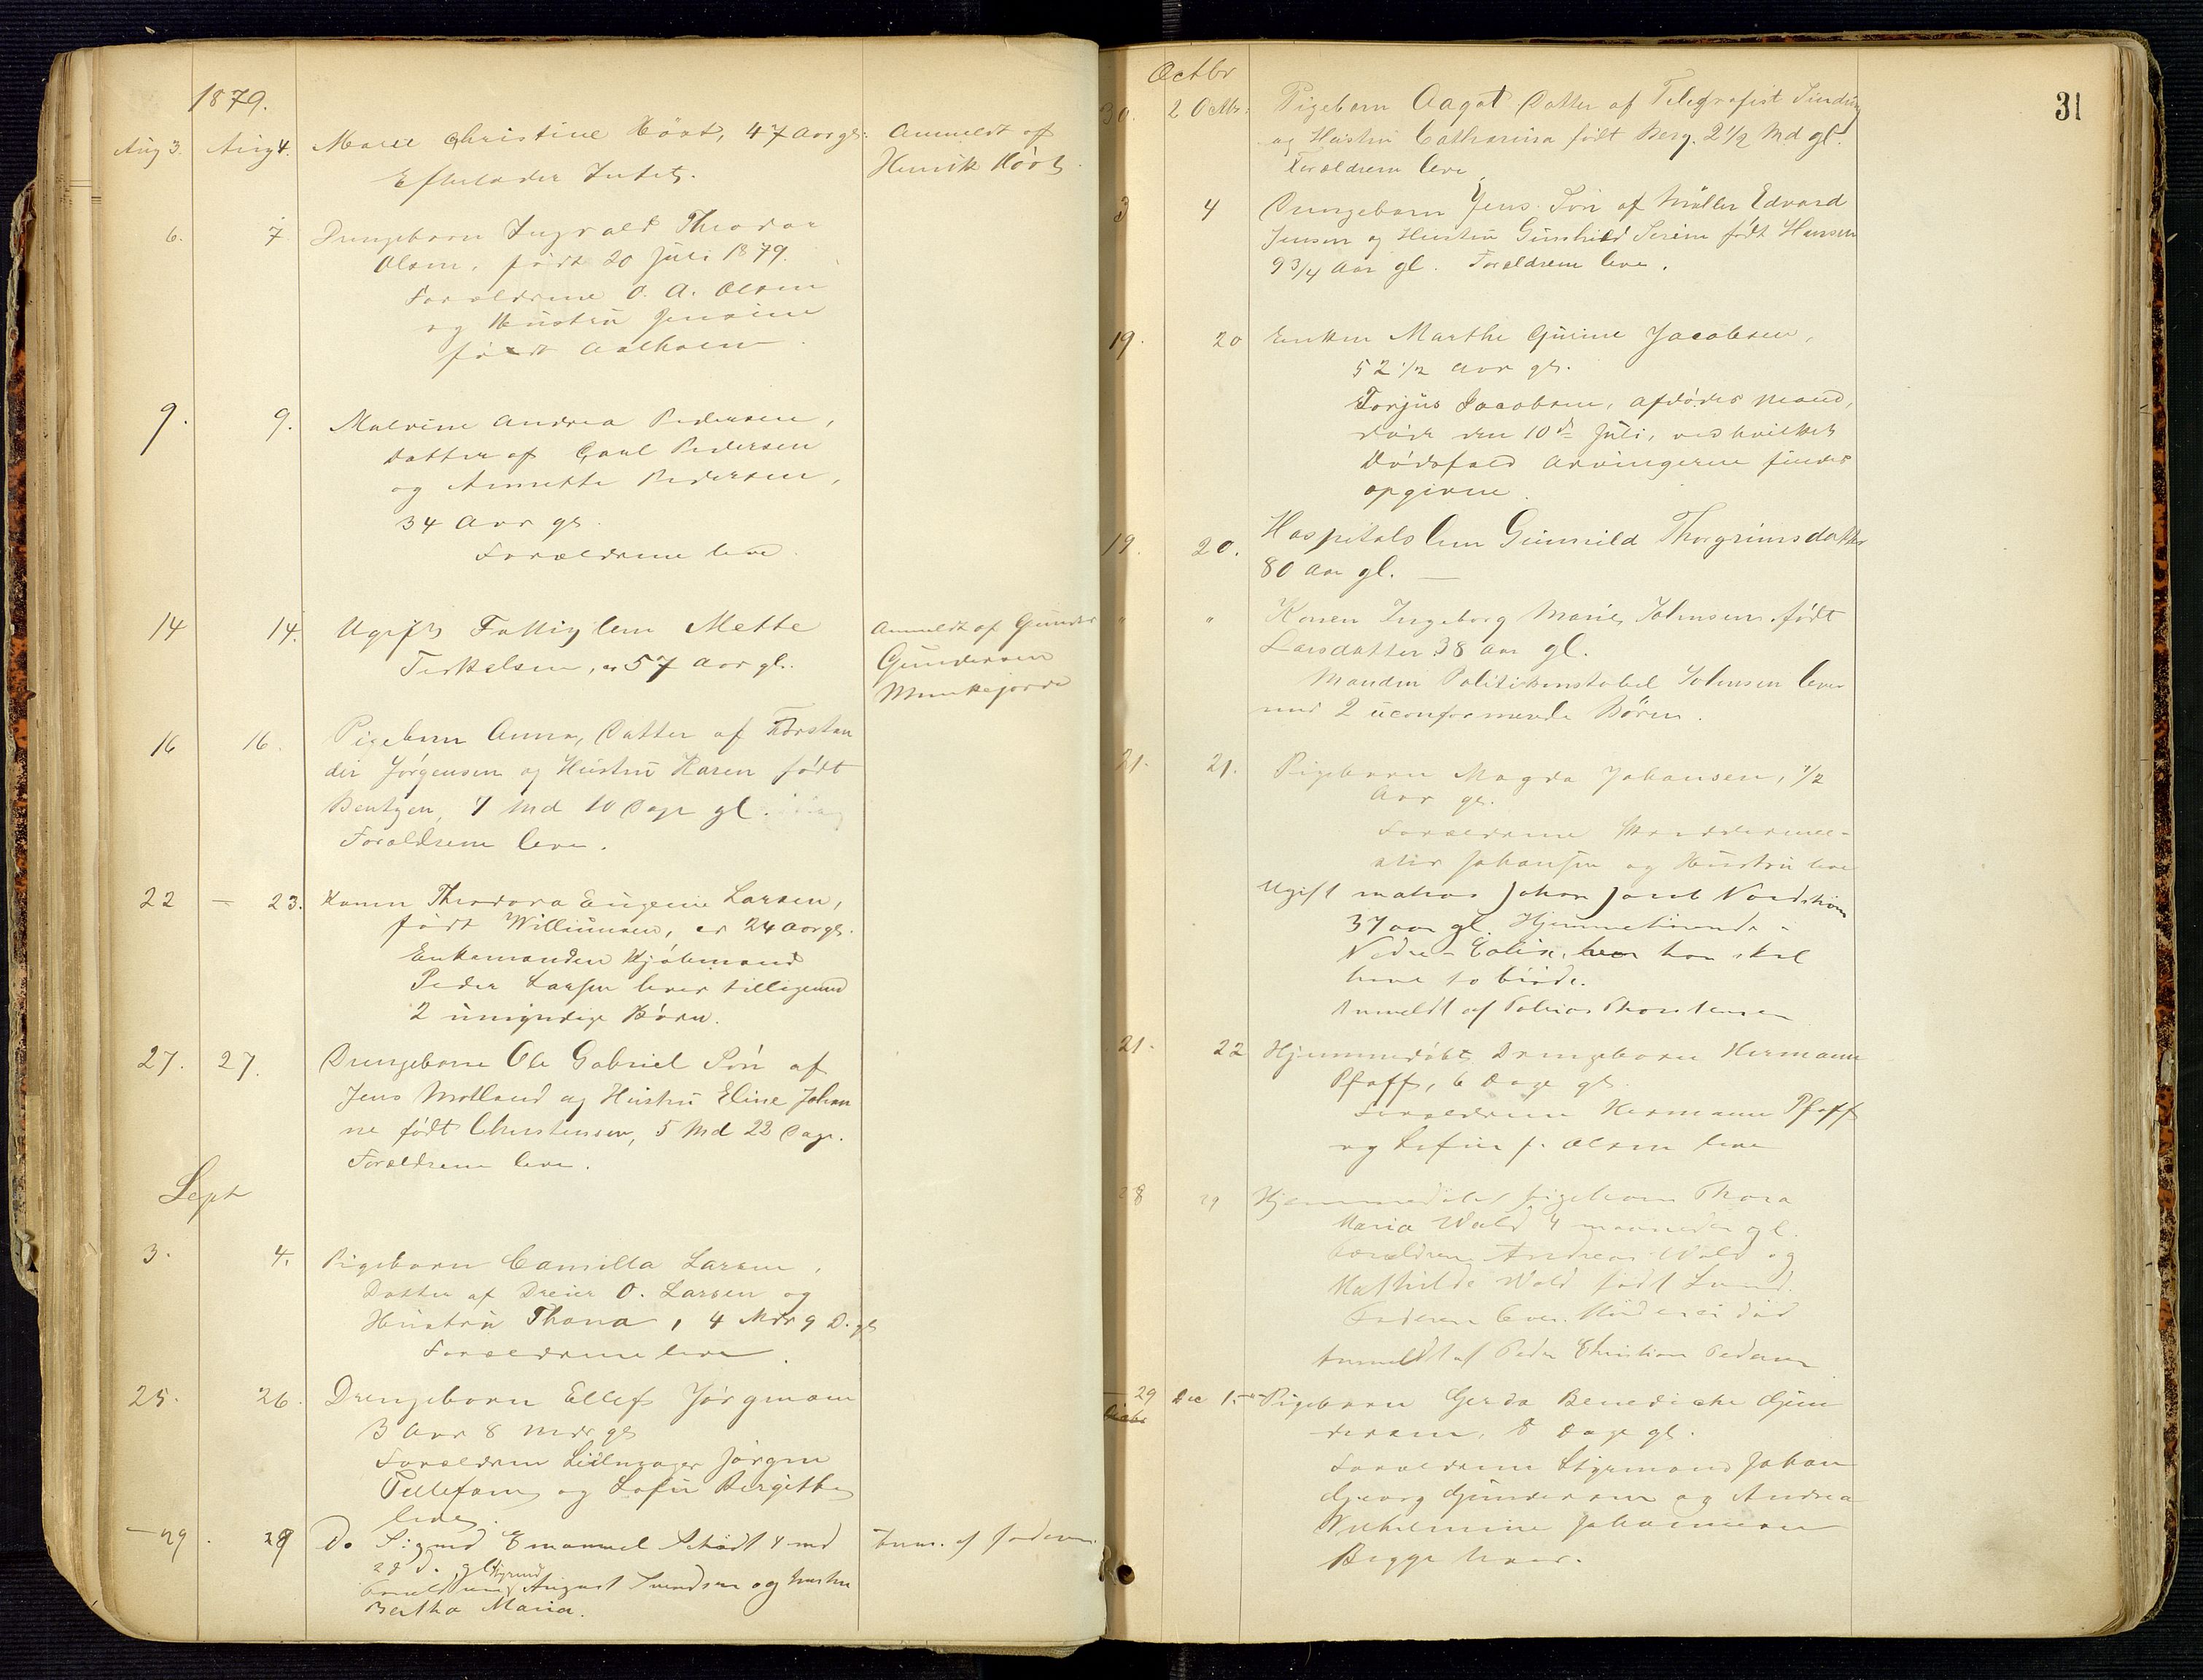 1879.
Aug 3. Aug 4. Maren Christine Höst, 47 Aar gl. Anmeldt af
Efterlader Intet. Henrik Höst
6. 7. Drengebarn Ingvald Theodor
Olsen, födt 20 Juli 1879.
Forældrene O. A. Olsen
og Hustru Jensine
födt Aalholm.
9. 9. Malvine Andrea Pedersen,
Datter af Carl Pedersen
og Annette Pedersen,
34 Aar gl.
Forældrene leve.
14 14. Ugift Fattiglem Mette
Terkelsen, 57 Aar gl. Anmeldt af Gunder
Gundersen
Munkejorde
16 16. Pigebarn Anna, Datter af Forstan
der Jörgensen og Hustru Karen födt
Bentzen, 7 Md 10 Dage gl.
Forældrene leve.
22 — 23. Konen Theodora Eugenie Larsen,
födt Williumsen, 24 Aar gl.
Enkemanden Kjöbmand
Peder Larsen lever tilligemed
2 umyndige Börn.
27. 27. Drengebarn Ole Gabriel Sön af
Jens Motland og Hustru Eline Johan
ne födt Christensen, 5 Md 22 Dage.
Forældrene leve.
Sept
3. 4. Pigebarn Camilla Larsen,
Datter af Dreier O. Larsen og
Hustru Thona, 4 Mdr 9 D. gl
Forældrene leve.
25. 26. Drengebarn Ellef Jörgensen
3 Aar 8 Mdr gl
Forældrene Jörgen
Tellefsen og Sofie Birgithe
lever.
— 29. 29 Do Sigurd Emanuel 4 md
28 d. gl Sigurd Anm. af faderen.
Forældrene August Svendsen og hustru
Bertha Maria.
Octbr 31
30. 2 Octbr. Pigebarn Aagot Datter af Telegrafist Sinding
og Hustru Catharina födt Berg. 2 1/2 Md gl.
Forældrene leve.
3 4 Drengebarn Jens. Sön af Möller Edvard
Jensen og Hustru Gunhild Serine födt Hansen
9 3/4 Aar gl. Forældrene leve.
19. 20 Enken Marthe Gurine Jacobsen,
52 1/2 Aar gl.
Torjus Jacobsen, afdödes Mand,
döde den 10de Juli, ved hvilket
Dödsfald Arvingerne findes
opgivne.
19. 20. Hospitalslem Gunnild Thorgrimsdatter
80 Aar gl. —
" " Konen Ingeborg Marie Johnsen födt
Larsdatter 38 Aar gl.
Manden Politikonstabel Johnsen lever
med 2 uconfirmerede Börn.
21. 21. Pigebarn Magda Johansen, 1/2
Aar gl.
Forældrene
Johansen og Hustru leve
Ugift matros Johan Jacob Nordström
37 aar gl. Hjemmehörende i
Nedre-Calix, hvor han skal
have to
Anmeldt af Tobias Thorstensen
21. 22 Hjemmedöbt Drengebarn Hermann
Pfaff, 6 Dage gl.
Forældrene Hermann Pfaff
og Sofie f. Olsen leve
28 29 Hjemmedöbt pigebarn Thora
Maria Wold 4 maaneder gl.
Forældrene Andreas Wold og
Mathilde Wold födt Lund.
Faderen lever. Moderen er död
Anmeldt af Peder Christian Pedersen
— 29 Dec 1. Pigebarn Gerda Benedicte Gun
dersen, 8 Dage gl.
Forældrene Styrmand Johan
Georg Gundersen og Andrea
Wilhelmine Johannesen
Begge lever.